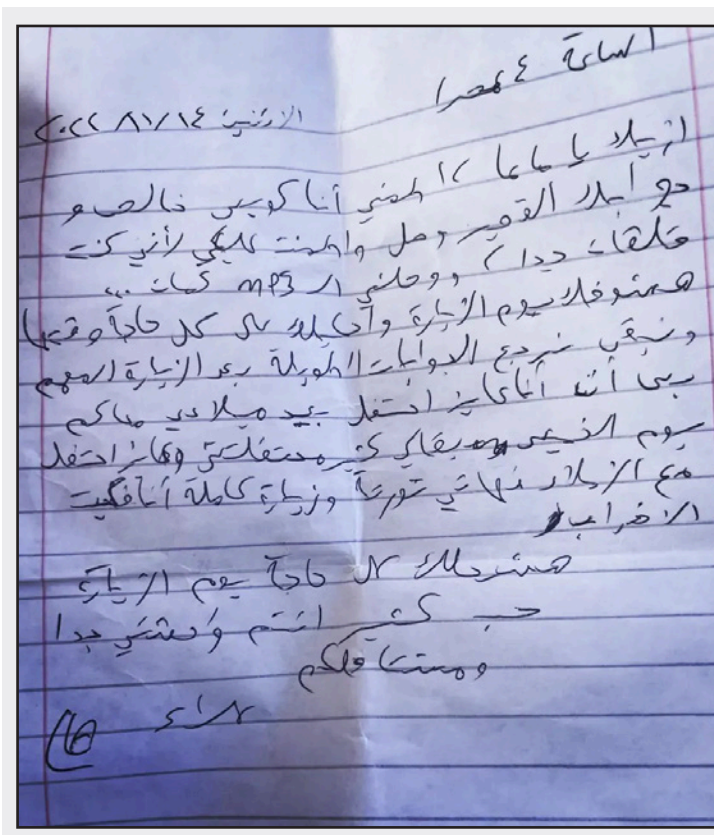 الساعة ٤ عصرا
الاثنين ١٤/١١/٢٠٢٢
ازيك يا ماما ؟ اطمني أنا كويس خالص و
جوابك القصير وصل واطمنت عليكي لأني كنت
قلقان جدا ووصلني الـ mp3 كمان ...
هشوفك يوم الزيارة وأحكيلك على كل حاجة وقتها
ونبقى نرجع للجوابات الطويلة بعد الزيارة المهم
بس أنا عايز احتفل بعيد ميلادي معاكم
يوم الخميس بقالي كتير محتفلتش وعايز احتفل
مع الزملاء فهاتي تورتة وزيارة كاملة أنا فكيت
الاضراب
هشرحلك كل حاجة يوم الزيارة
حب كتير انتم وحشتني جدا
ومشتاقلكم
علاء